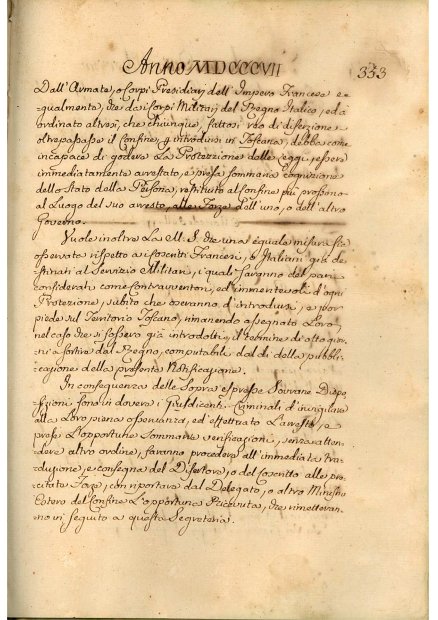 Anno MDCCCVII
333
Dall'Armate, o Corpi Presidiarj dell'Impero Francese e-
=qualmente, che dai Corpi Militari del Regno Italico, ed à
ordinato altresì, che chiunque, fattosi reo di diserzione
oltrepassasse il Confine, p introdursi in Toscana, debba come
incapace di godere La Protezione delle Leggi, essere
immediatamente arrestato, e presa sommaria cognizione
dello stato della Persona, restituito al Confine più prossimo
al Luogo del suo arresto, alle Forze dell'uno, o dell'altro
Governo.
Vuole inoltre La M. S. che una eguale misura sia
osservata rispetto ai Coscritti Francesi, o Italiani già de-
stinati al Servizio Militare, i quali saranno del pari
considerati come Contravventori, ed immeritevoli d'ogni
Protezione, subito che oseranno d'introdursi, e por
piede sul Territorio Toscano, rimanendo assegnato Loro,
nel caso che si fossero già introdotti, il termine di otto gior-
ni a sortire dal Regno, computabili dal dì della pubbli-
cazione della presente Notificazione.
In conseguenza delle Sopra espresse Sovrane Dispo-
sizioni sono in dovere i Giusdicenti Criminali d'invigilare
alla Loro piena osservanza, ed effettuato L'arresto, e
prese L'opportune Sommarie verificazioni, senza atten-
dere altro ordine, faranno procedere all'immediata tra-
duzione, e consegna del Disertore, o del Coscritto alle pre-
citate Forze, con riportare dal Delegato, o altro Ministro
Estero del Confine L'opportuna Ricevuta, che rimetteran-
no in seguito a questa Segreteria.